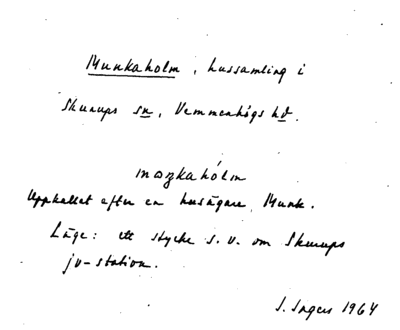 Munkaholm, hussamling i
Skurups sn, Vemmenhögs hd.
moŋkahólm
Uppkallat efter en husägare, Munk.
Läge: ett stycke s.v. om Skurups
jv-station.
S. Ingers 1964